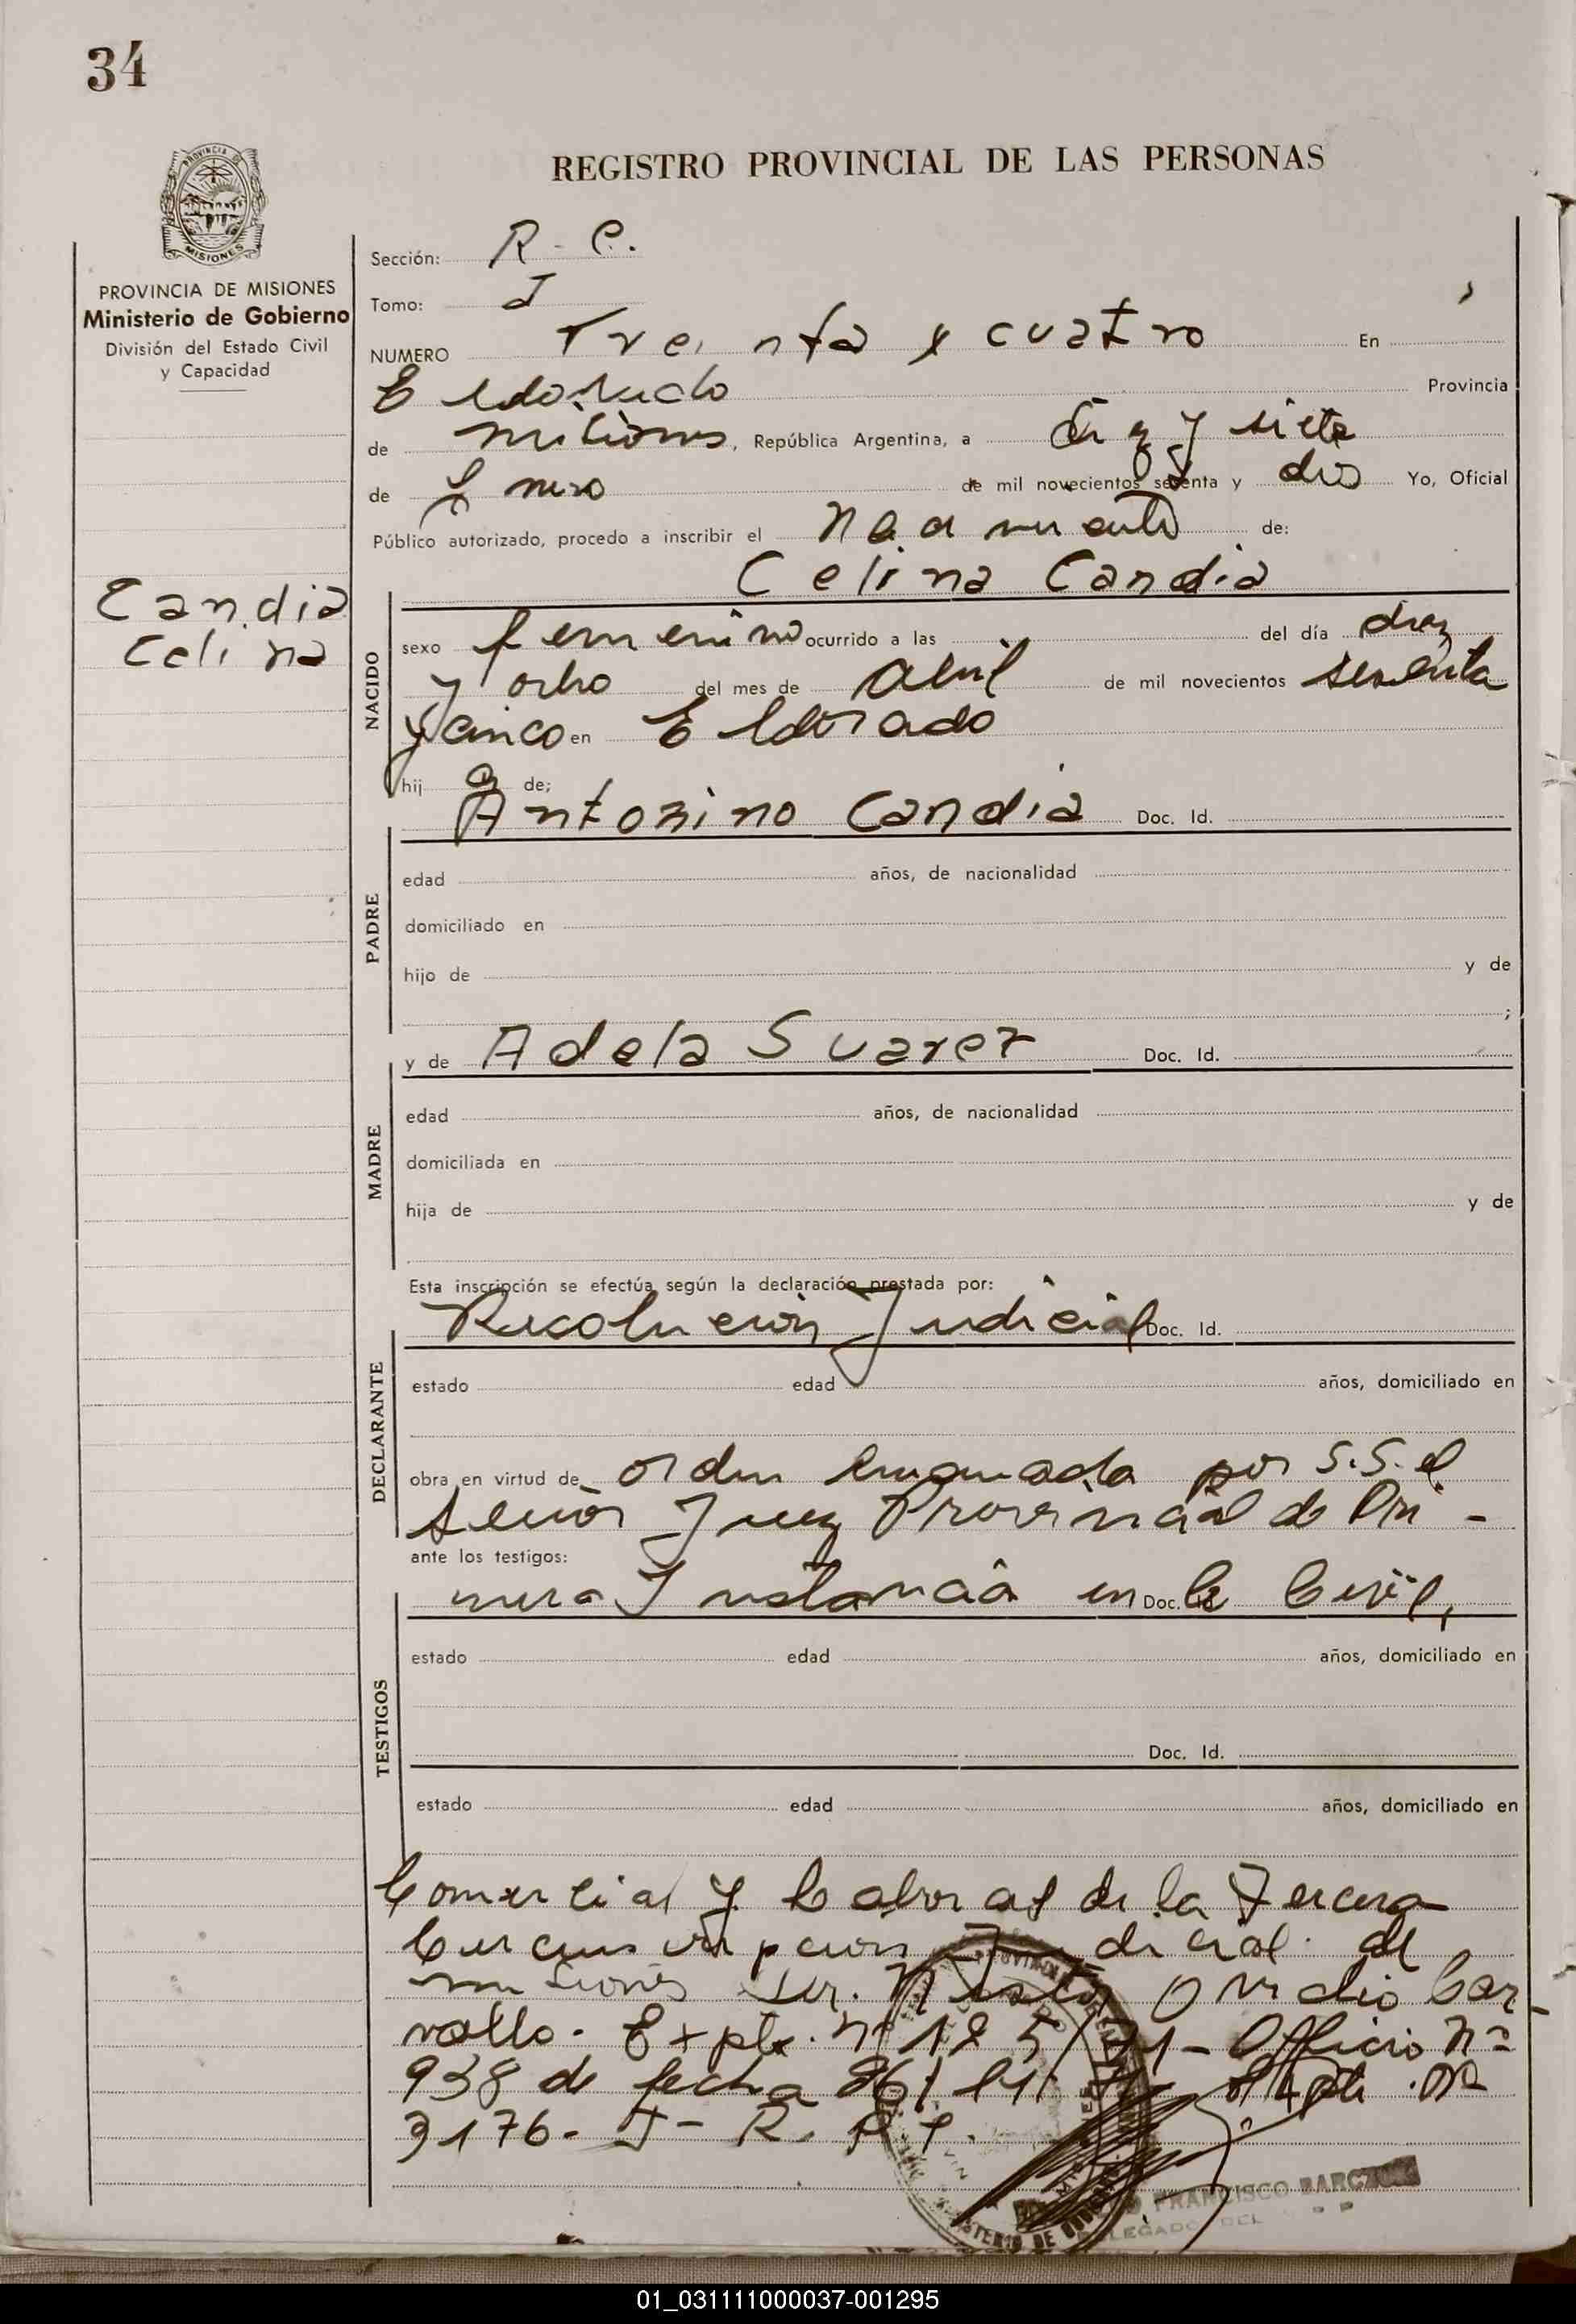 34
REGISTRO PROVINCIAL DE LAS PERSONAS
PROVINCIA DE
MISIONES
PROVINCIA DE MISIONES
Ministerio de Gobierno
División del Estado Civil
y Capacidad
Candia
Celina
Sección: R - C.
Tomo: I
NUMERO Treinta y cuatro En
Eldorado Provincia
de Misiones, República Argentina, a diez y siete
de Enero de mil novecientos setenta y dos Yo, Oficial
Público autorizado, procedo a inscribir el nacimiento de:
Celina Candia
NACIDO
sexo femenino ocurrido a las del día diez
y ocho del mes de abril de mil novecientos sesenta
y cinco en Eldorado
hij a de;
Antonino Candia Doc. Id.
PADRE
edad años, de nacionalidad
domiciliado en
hijo de y de
;
y de Adela Suarez Doc. Id.
MADRE
edad años, de nacionalidad
domiciliada en
hija de y de
Esta inscripción se efectúa según la declaración prestada por:
Resolución Judicial Doc. Id.
DECLARANTE
estado edad años, domiciliado en
obra en virtud de orden emanada por S.S. el
Señor Juez Provincial de Pri -
ante los testigos:
mera Instancia en lo Civil, Doc.
TESTIGOS
estado edad años, domiciliado en
Doc. Id.
estado edad años, domiciliado en
Comercial y Laboral de la Tercera
Circunscripción Judicial de
Misiones Dr. Ovidio Car-
vallo - Expte. nº /71 - Oficio nº
938 de fecha Expte. nº
3176 - J - R. P. P.
FRANCISCO
DELEGADO DEL
01_031111000037-001295